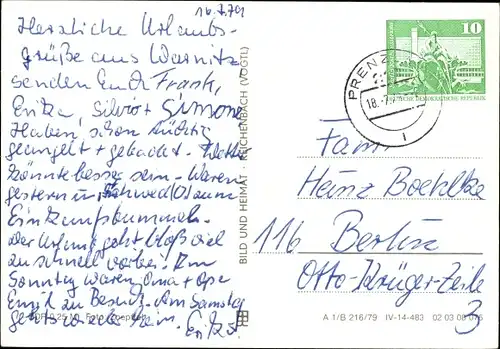 16.7.79
Herzliche Urlaubs-
grüße aus Warnitz
senden Euch Frank,
Erika, Silvio + Simone
Haben schon tüchtig
geangelt + gebadet. Wetter
könnte besser sein. Waren
gestern in Schwedt (O) zum
Einkaufsbummel.
Der Urlaub geht bloß viel
zu schnell vorbei. Am
Sonntag waren Oma + Opa
zu Besuch. Am Samstag
geht's wieder heim.
BILD UND HEIMAT REICHENBACH (VOGTL)
10
DEUTSCHE DEMOKRATISCHE REPUBLIK
PRENZ
18.7.
Fam.
Heinz Boehlke
116 Berlin
Otto-Krüger-Zeile
3
A 1/B 216/79 IV-14-483 02 03 08 076